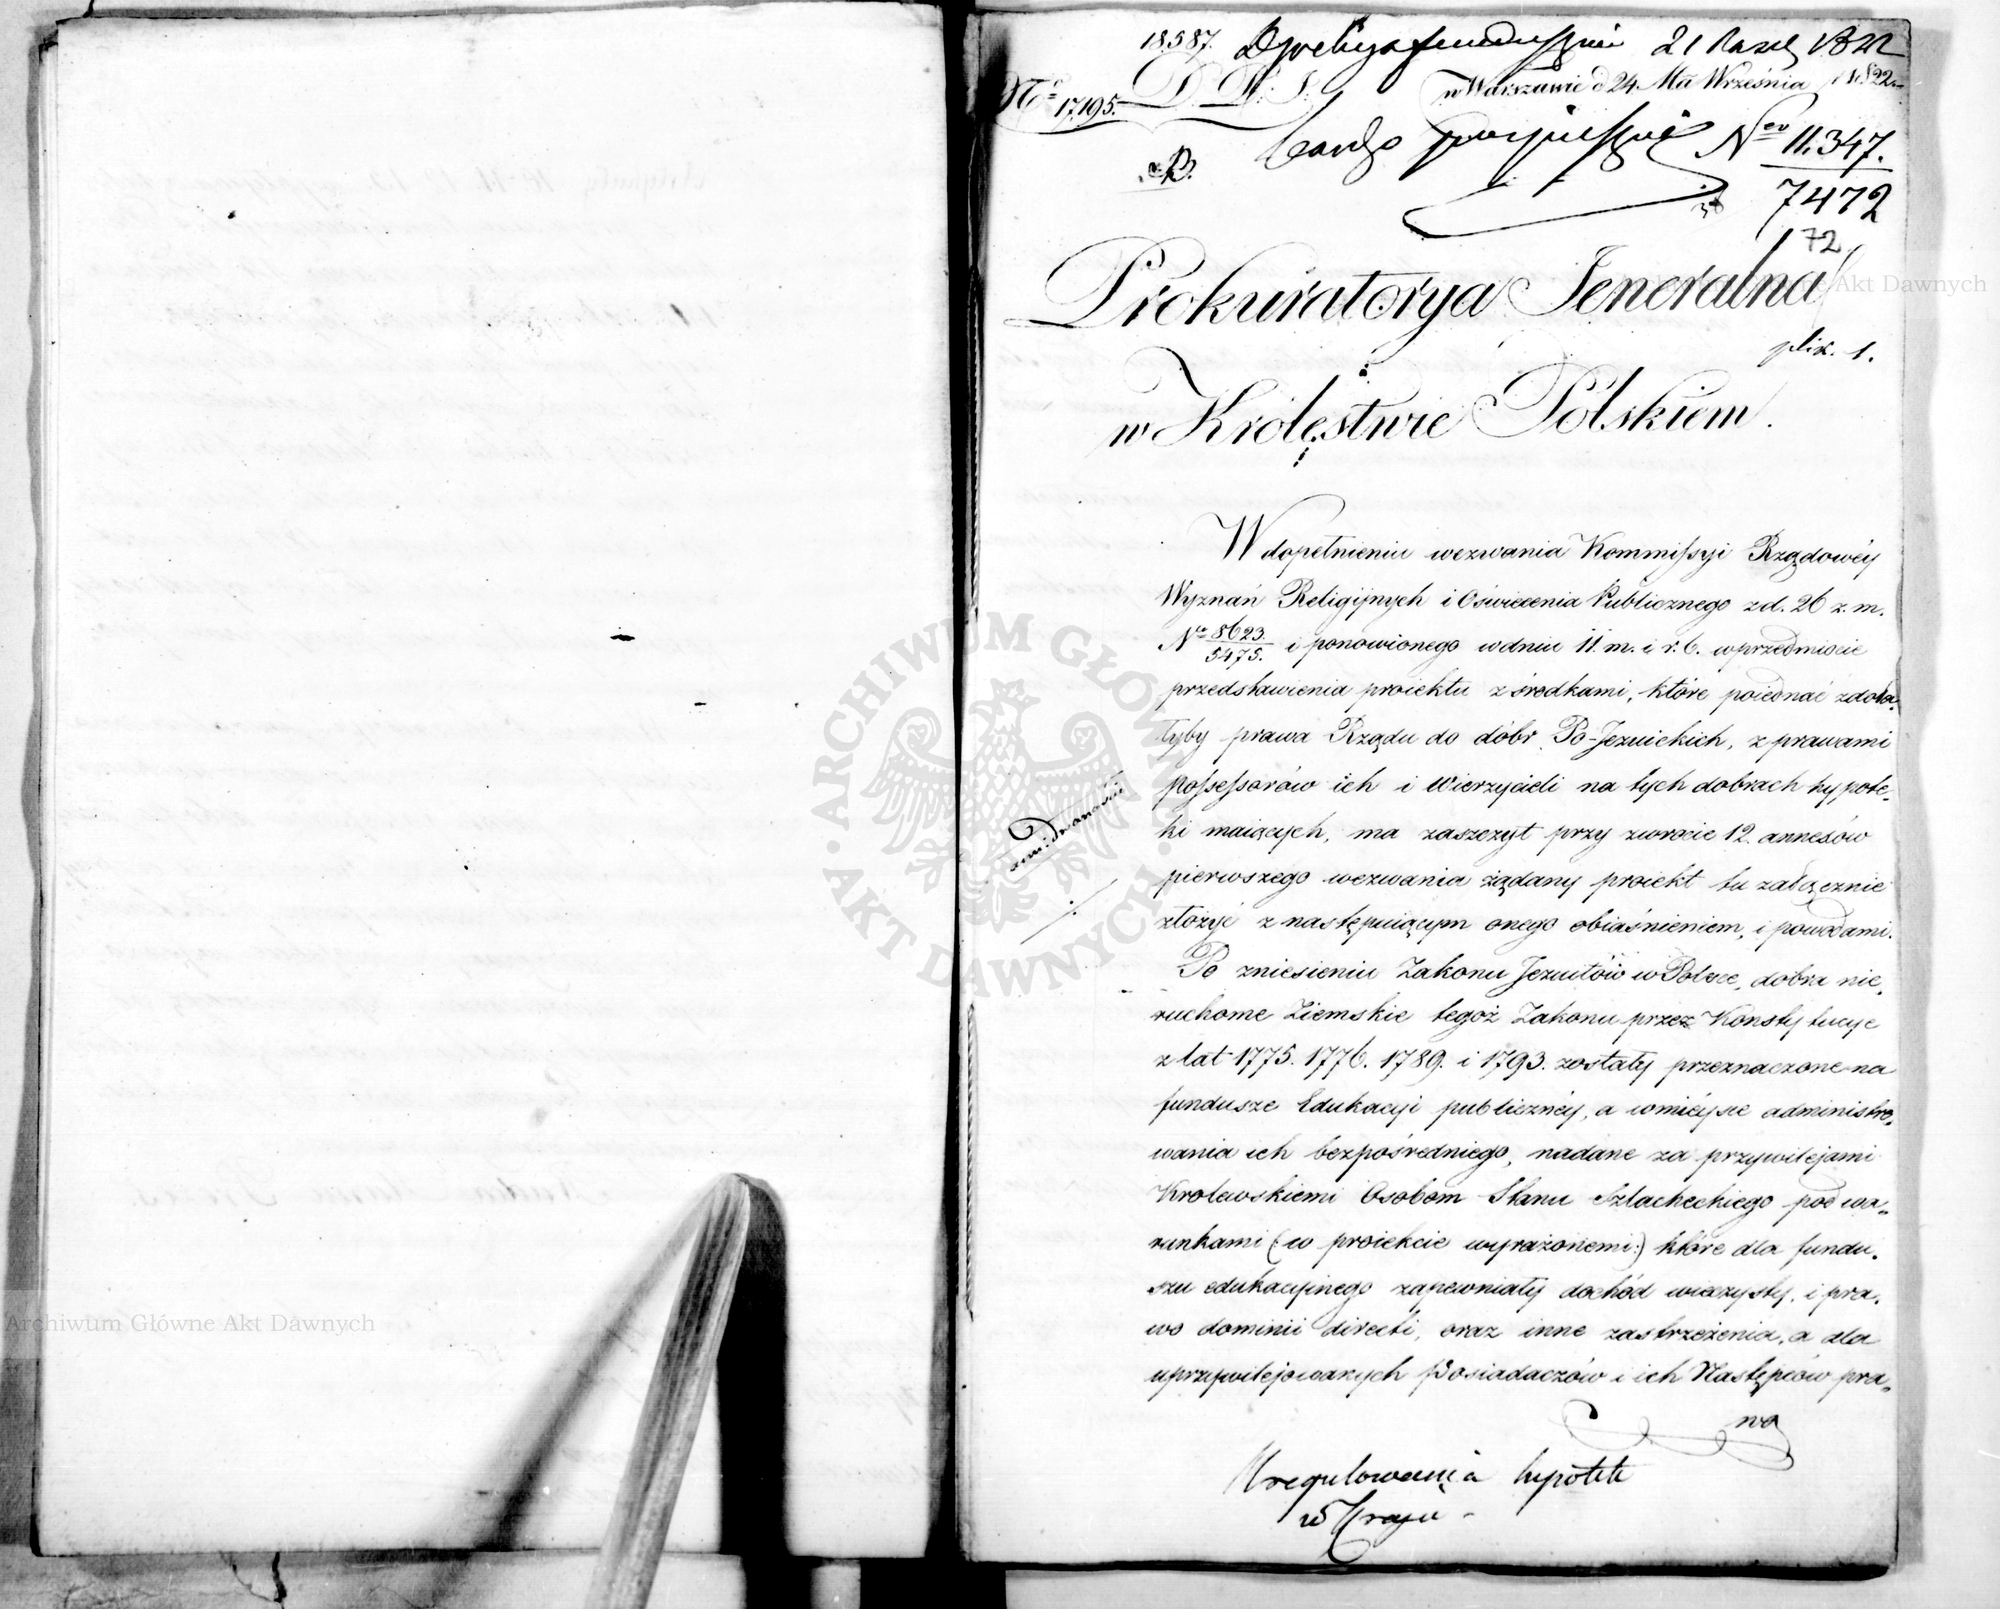 18587. 21 1822
No 17,195. D. W. S. w Warszawie d 24. Ma Września 1822
bardzo No 11.347.
7472
72
Prokuratorya Jeneralna
plik. 1.
w Krolęstwie Polskiem.
W dopełnieniu wezwania Kommissyi Rządowéy
Wyznań Religijnych i Oświecenia Publicznego z d. 26 z. m.
No 8623./5475. i ponowionego w dniu 11. m. i r. b. w przedmiocie
przedstawienia proiektu z środkami, które poiednać zdoła-
łyby prawa Rządu do dóbr Po-Jezuickich, z prawami
possessorów ich i Wierzycieli na tych dobrach hypote-
ki maiących, ma zaszczyt przy zwrocie 12. annexów
pierwszego wezwania żądany proiekt tu załącznie
złożyć z następuiącym onego obiaśnieniem, i powodami.
Po zniesieniu Zakonu Jezuitów w Polsce, dobra nie-
ruchome Ziemskie tegoż Zakonu przez Konstytucye
z lat 1775. 1776. 1789. i 1793. zostały przeznaczone na
fundusze Edukacyi publicznéy, a w miéysce administro-
wania ich bezpośredniego, nadane za przywilejami
Krolewskiemi Osobom Stanu Szlacheckiego pod wa-
runkami (w proiekcie wyrażonemi:) które dla fundu-
szu edukacyinego zapewniały dochód wieczysty, i pra-
wo dominii directi, oraz inne zastrzeżenia, a dla
uprzywilejowanych Posiadaczów i ich Następców pra-
wa
Uregulowania hypotek
w Kraju -
Archiwum Główne Akt Dawnych
Akt Dawnych
ARCHIWUM GŁÓWNE AKT DAWNYCH